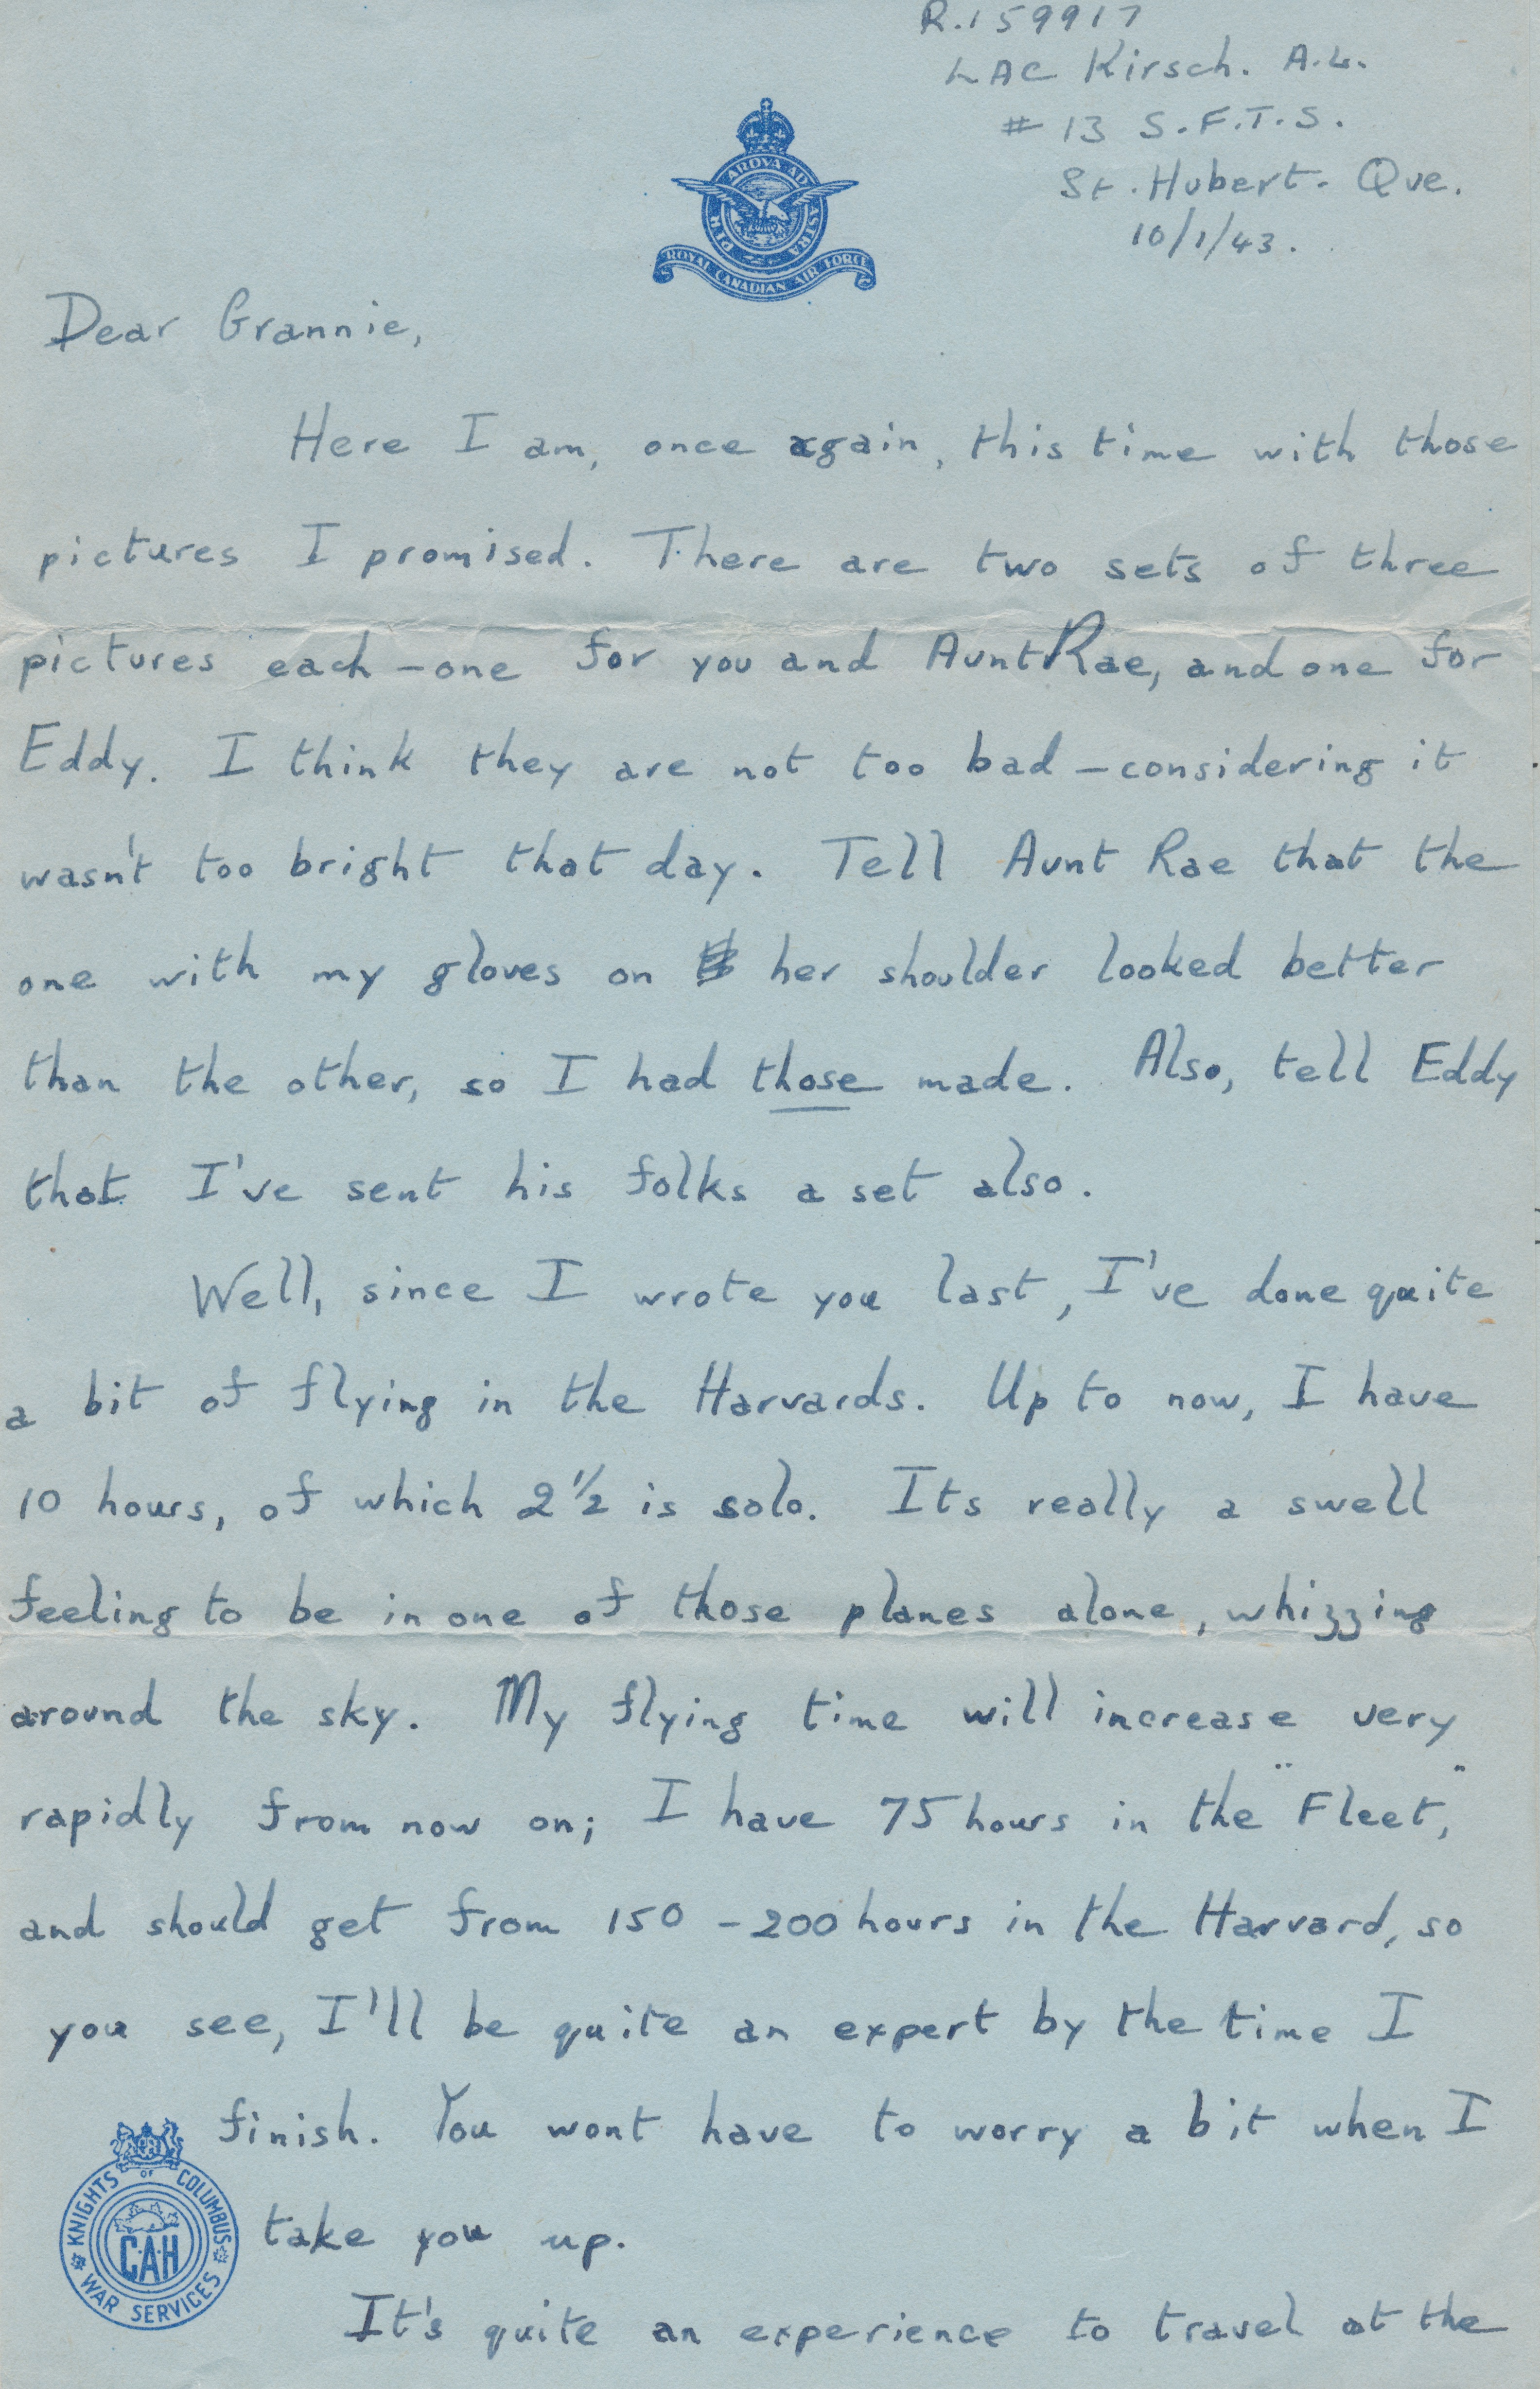 R.159917
LAC Kirsch. A.L.
# 13 S.F.T.S.
St. Hubert. Que.
10/1/43.
PER ARDVA AD ASTRA
ROYAL CANADIAN AIR FORCE
Dear Grannie,
Here I am, once again, this time with those
pictures I promised. There are two sets of three
pictures each – one for you and Aunt Rae, and one for
Eddy. I think they are not too bad – considering it
wasn't too bright that day. Tell Aunt Rae that the
one with my gloves on her shoulder looked better
than the other, so I had those made. Also, tell Eddy
that I've sent his folks a set also.
Well, since I wrote you last, I've done quite
a bit of flying in the Harvards. Up to now, I have
10 hours, of which 2 1/2 is solo. Its really a swell
feeling to be in one of those planes alone, whizzing
around the sky. My flying time will increase very
rapidly from now on; I have 75 hours in the "Fleet,"
and should get from 150 – 200 hours in the Harvard, so
you see, I'll be quite an expert by the time I
finish. You wont have to worry a bit when I
take you up.
KNIGHTS OF COLUMBUS
C.A.H
WAR SERVICES
It's quite an experience to travel at the